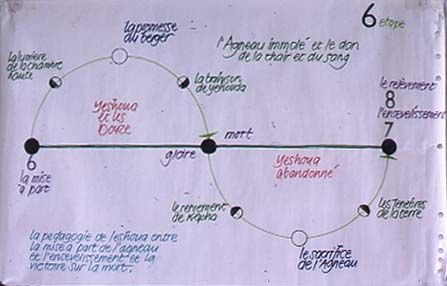 6
étape
la promesse
du berger
l'Agneau immolé et le don
de la chair et du sang
la lumière
de la chambre
haute
la trahison
de Yehouda
Yeshoua
et les
Douze
le relèvement
8
l'ensevelissement
7
mort
gloire
6
la mise
à part
Yeshoua
abandonné
le reniement
de Kapha
les Ténèbres
de la terre
le sacrifice
de l'Agneau
la pedagogie de Ieshoua entre
la mise à part de l'agneau
et l'ensevelissement et la
victoire sur la mort.